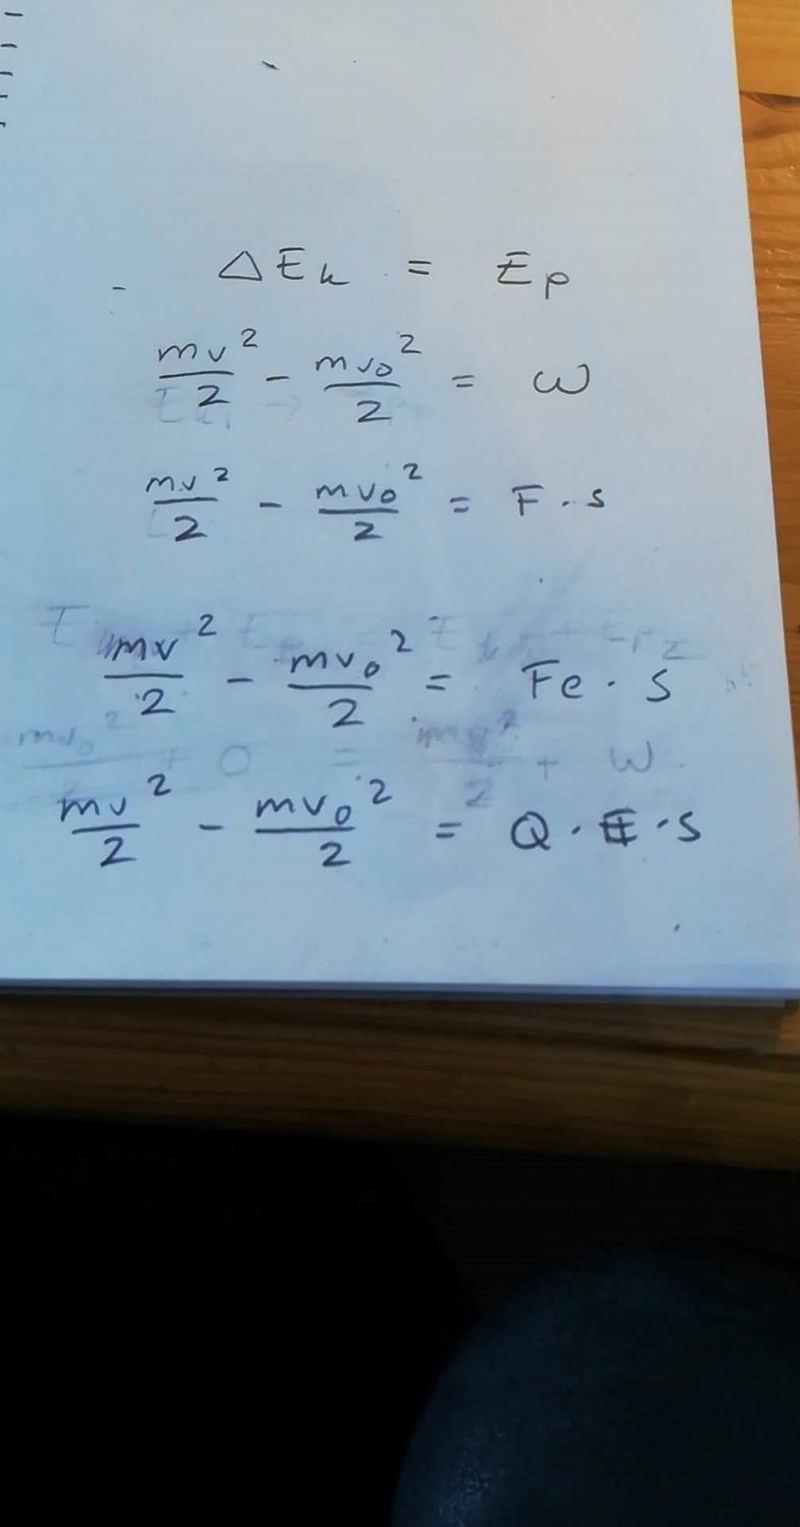 ΔEk = Ep
mv²/2 - mv₀²/2 = W
mv²/2 - mv₀²/2 = F·s
mv²/2 - mv₀²/2 = Fe·s
mv²/2 - mv₀²/2 = Q·E·s